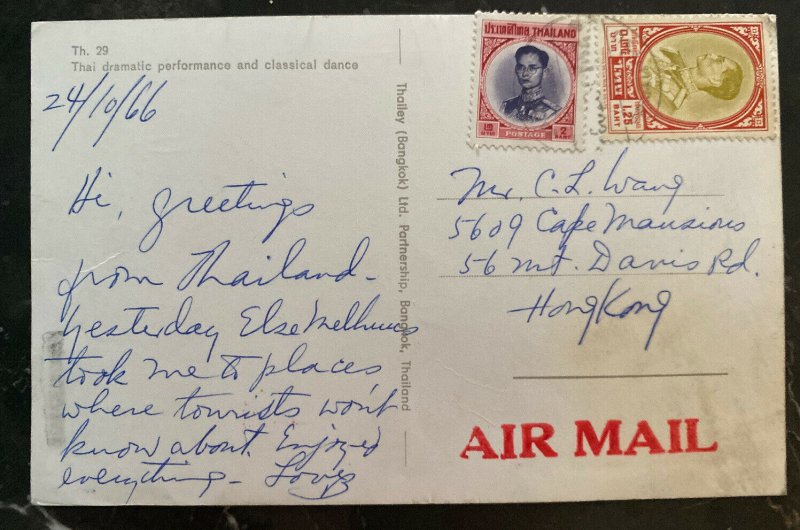 Th. 29
Thai dramatic performance and classical dance
24/10/66
Hi, greetings
from Thailand-
Yesterday Else
took me to places
where tourists won't
know about. Enjoyed
everything-
Thailey (Bangkok) Ltd. Partnership, Bangkok, Thailand
ประเทศไทย THAILAND
POSTAGE
2
BAHT
1.25
BAHT
Mr. C. L. Wang
5609 Cape Mansions
56 Mt. Davis Rd.
Hong Kong
AIR MAIL